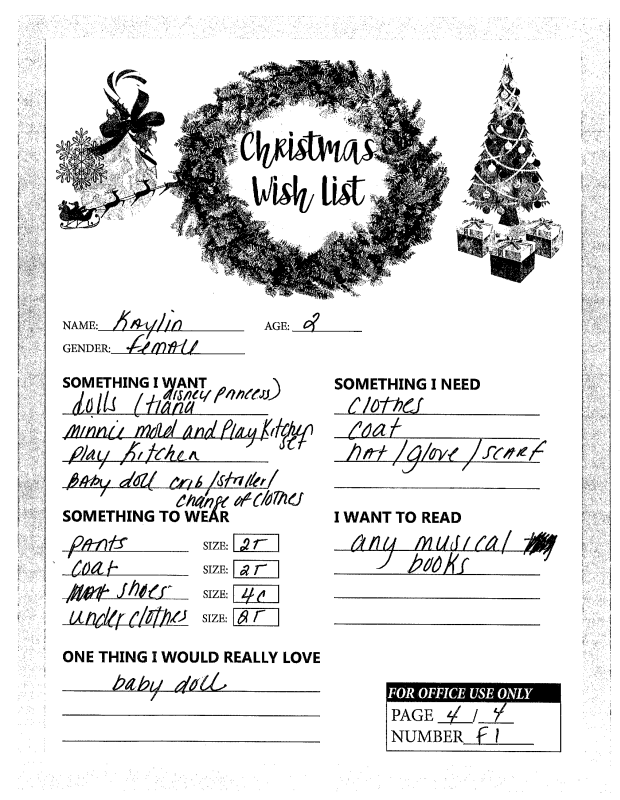 Christmas
Wish list
NAME: Kaylin AGE: 2
GENDER: female
SOMETHING I WANT
dolls (tiana disney princess)
minnie mold and Play Kitchen set
Play Kitchen
BABY doll crib/stroller/
change of clothes
SOMETHING I NEED
clothes
coat
hat/glove/scarf
SOMETHING TO WEAR
pants SIZE: 2T
coat SIZE: 2T
shoes SIZE: 4c
under clothes SIZE: 2T
I WANT TO READ
any musical
books
ONE THING I WOULD REALLY LOVE
baby doll
FOR OFFICE USE ONLY
PAGE 4 / 4
NUMBER F1